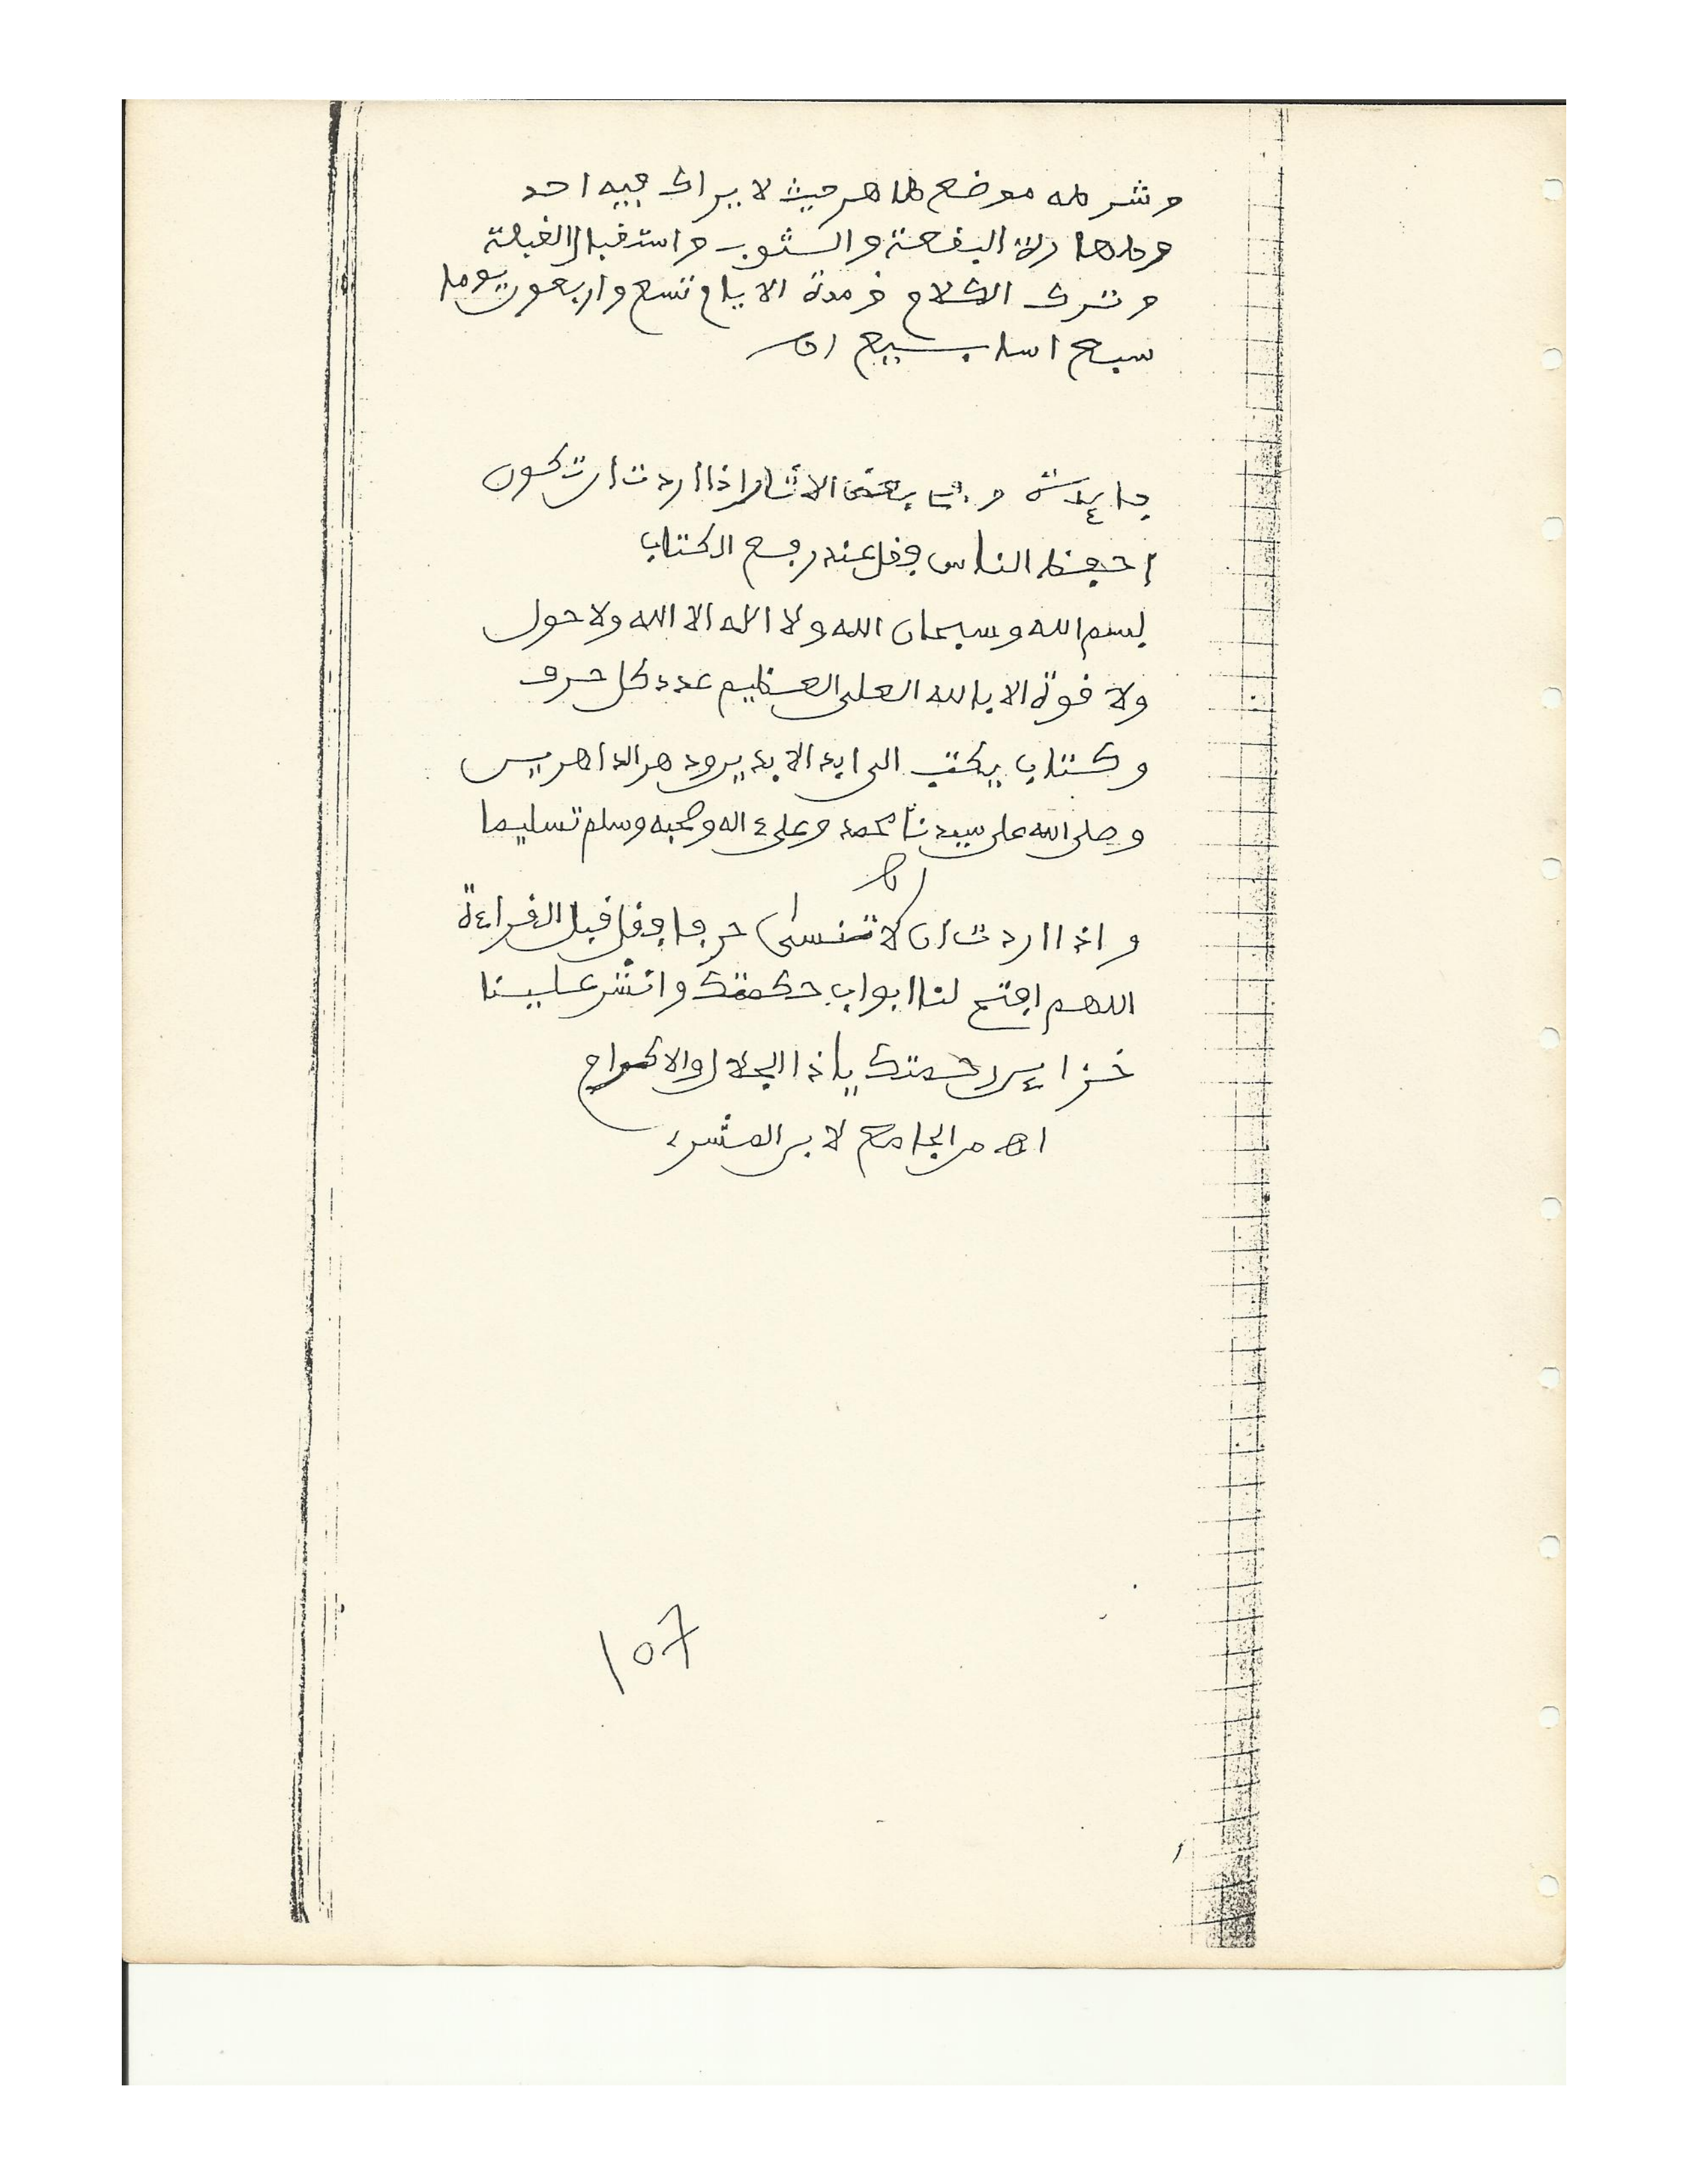 وشرطه موضع طاهر حيث لا يراك فيه احد
وطهارة البقعة والثوب واستقبال القبلة
وترك الكلام ومدة الايام تسع واربعون يوما
سبع اسابيع اه
فايدة وفي بعض الاثار اذا اردت ان تكون
احفظ الناس فقل عند رفع الكتاب
بسم الله وسبحان الله ولا اله الا الله ولا حول
ولا قوة الا بالله العلى العظيم عدد كل حرف
وكتاب يكتب الى ابد الابدين ودهر الداهرين
وصلى الله على سيدنا محمد وعلى ءاله وصحبه وسلم تسليما
اه
واذا اردت ان لا تنسى حرفا فقل قبل القراءة
اللهم افتح لنا ابواب حكمتك وانشر علينا
خزاين رحمتك ياذا الجلال والاكرام
اه من الجامع لابن العشرى
107